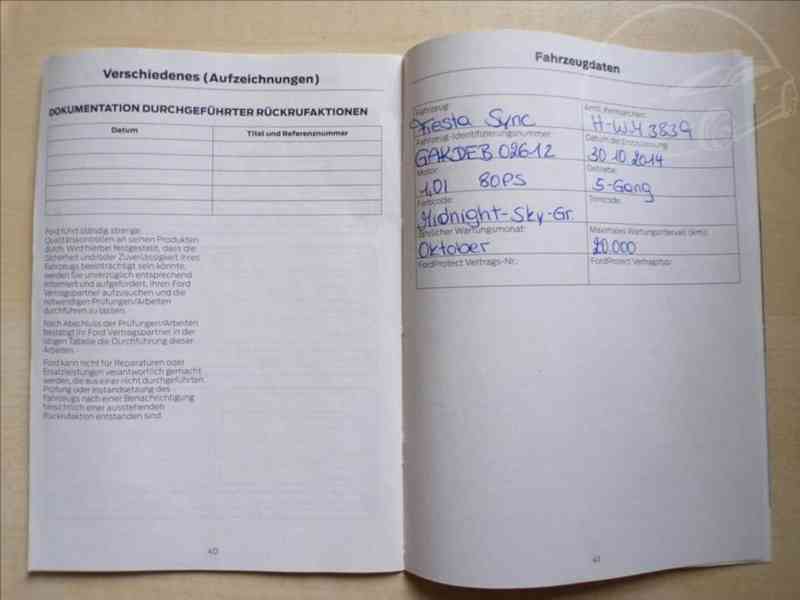 Verschiedenes (Aufzeichnungen)
DOKUMENTATION DURCHGEFÜHRTER RÜCKRUFAKTIONEN
Datum
Titel und Referenznummer
Ford führt ständig strenge
Qualitätskontrollen an seinen Produkten
durch. Wird hierbei festgestellt, dass die
Sicherheit und/oder Zuverlässigkeit Ihres
Fahrzeugs beeinträchtigt sein könnte,
werden Sie unverzüglich entsprechend
informiert und aufgefordert, Ihren Ford
Vertragspartner aufzusuchen und die
notwendigen Prüfungen/Arbeiten
durchführen zu lassen.
Nach Abschluss der Prüfungen/Arbeiten
bestätigt Ihr Ford Vertragspartner in der
obigen Tabelle die Durchführung dieser
Arbeiten.
Ford kann nicht für Reparaturen oder
Ersatzleistungen verantwortlich gemacht
werden, die aus einer nicht durchgeführten
Prüfung oder Instandsetzung des
Fahrzeugs nach einer Benachrichtigung
hinsichtlich einer ausstehenden
Rückrufaktion entstanden sind.
40
Fahrzeugdaten
Fahrzeug:
Fiesta Sync
Amtl. Kennzeichen:
H-WY 3839
Fahrzeug-Identifizierungsnummer:
GAKDEB 02612
Datum der Erstzulassung
30.10.2014
Motor:
1,0l 80PS
Getriebe:
5-Gang
Farbcode:
Midnight-Sky-Gr.
Türcode:
Jährlicher Wartungsmonat:
Oktober
Maximales Wartungsintervall (km):
20.000
FordProtect Vertrags-Nr.:
FordProtect Vertragstyp:
41